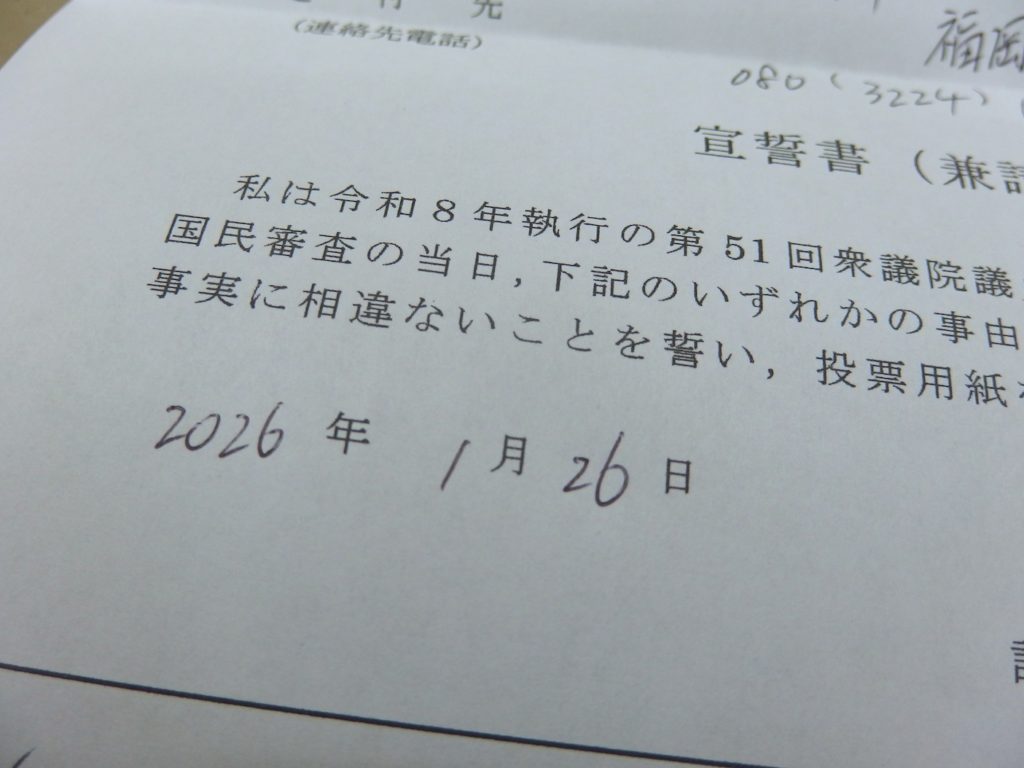 付先
(連絡先電話)
福岡
080 (3224)
宣誓書 (兼
私は令和8年執行の第51回衆議院議
国民審査の当日,下記のいずれかの事由
事実に相違ないことを誓い,投票用紙
2026年 1月26日